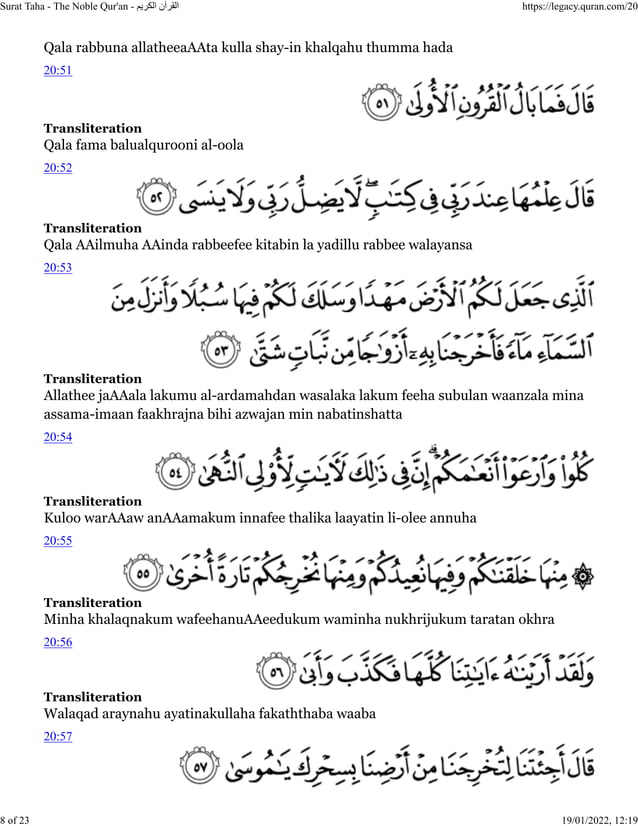 Surat Taha - The Noble Qur'an - القرآن الكريم https://legacy.quran.com/20
Qala rabbuna allatheeaAAta kulla shay-in khalqahu thumma hada
20:51
قَالَ فَمَا بَالُ ٱلْقُرُونِ ٱلْأُولَىٰ ٥١
Transliteration
Qala fama balualqurooni al-oola
20:52
قَالَ عِلْمُهَا عِندَ رَبِّى فِى كِتَـٰبٍ ۖ لَّا يَضِلُّ رَبِّى وَلَا يَنسَى ٥٢
Transliteration
Qala AAilmuha AAinda rabbeefee kitabin la yadillu rabbee walayansa
20:53
ٱلَّذِى جَعَلَ لَكُمُ ٱلْأَرْضَ مَهْدًا وَسَلَكَ لَكُمْ فِيهَا سُبُلًا وَأَنزَلَ مِنَ
ٱلسَّمَآءِ مَآءً فَأَخْرَجْنَا بِهِۦٓ أَزْوَٰجًا مِّن نَّبَاتٍ شَتَّىٰ ٥٣
Transliteration
Allathee jaAAala lakumu al-ardamahdan wasalaka lakum feeha subulan waanzala mina
assama-imaan faakhrajna bihi azwajan min nabatinshatta
20:54
كُلُوا۟ وَٱرْعَوْا۟ أَنْعَـٰمَكُمْ ۗ إِنَّ فِى ذَٰلِكَ لَـَٔايَـٰتٍ لِّأُو۟لِى ٱلنُّهَىٰ ٥٤
Transliteration
Kuloo warAAaw anAAamakum innafee thalika laayatin li-olee annuha
20:55
۞ مِنْهَا خَلَقْنَـٰكُمْ وَفِيهَا نُعِيدُكُمْ وَمِنْهَا نُخْرِجُكُمْ تَارَةً أُخْرَىٰ ٥٥
Transliteration
Minha khalaqnakum wafeehanuAAeedukum waminha nukhrijukum taratan okhra
20:56
وَلَقَدْ أَرَيْنَـٰهُ ءَايَـٰتِنَا كُلَّهَا فَكَذَّبَ وَأَبَىٰ ٥٦
Transliteration
Walaqad araynahu ayatinakullaha fakaththaba waaba
20:57
قَالَ أَجِئْتَنَا لِتُخْرِجَنَا مِنْ أَرْضِنَا بِسِحْرِكَ يَـٰمُوسَىٰ ٥٧
8 of 23 19/01/2022, 12:19